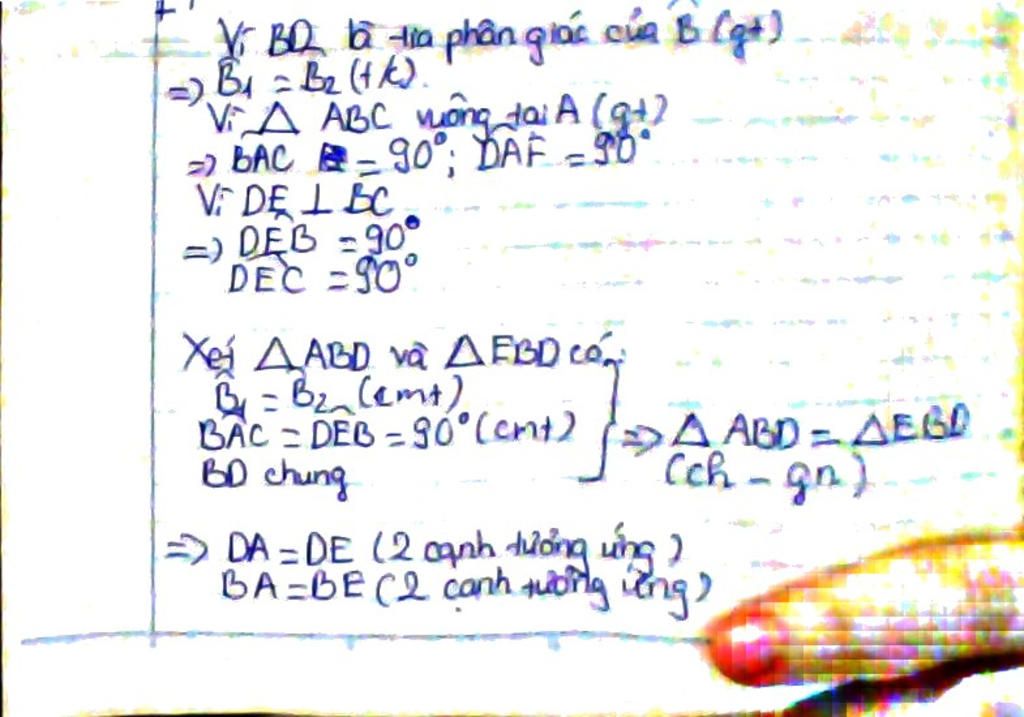 Vì BD là tia phân giác của B̂ (gt)
=> B̂1 = B̂2 (t/c).
Vì △ ABC vuông tại A (gt)
=> BAC = 90°; DAF = 90°
Vì DE ⊥ BC
=> DÊB = 90°
DÊC = 90°
Xét △ABD và △EBD có:
B̂1 = B̂2 (cmt)
BÂC = DÊB = 90° (cmt)
BD chung
=> △ ABD = △EBD
(ch - gn)
=> DA = DE (2 cạnh tương ứng)
BA = BE (2 cạnh tương ứng)